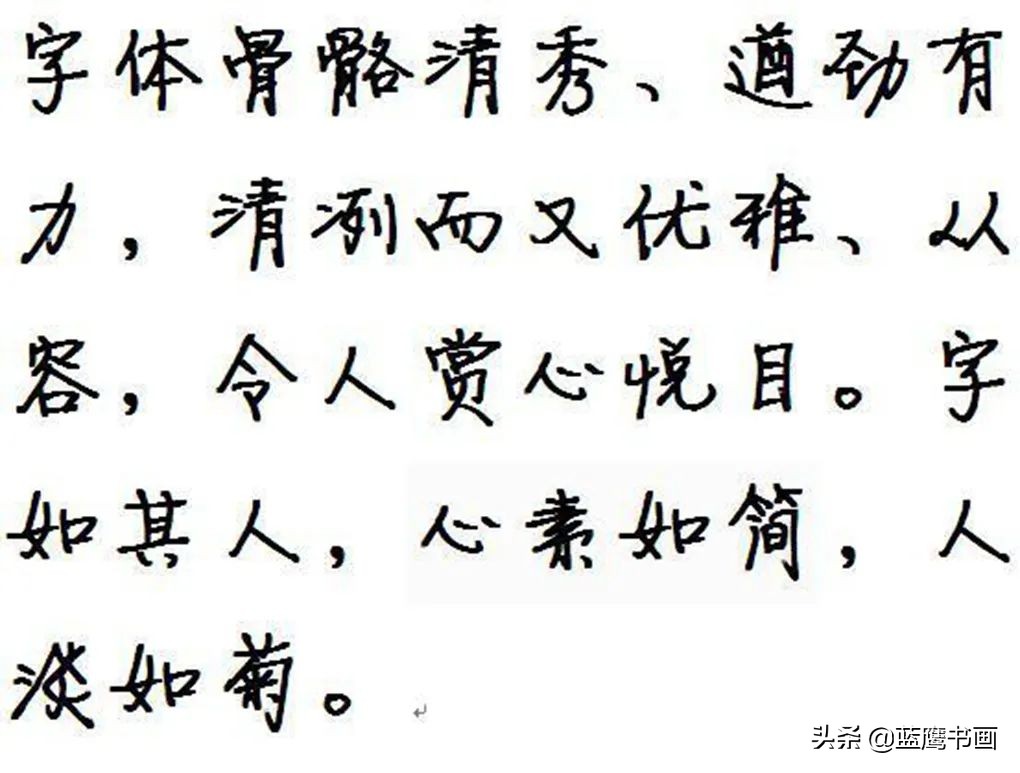 字体骨骼清秀、遒劲有
力，清冽而又优雅、从
容，令人赏心悦目。字
如其人，心素如简，人
淡如菊。
头条 @蓝鹰书画